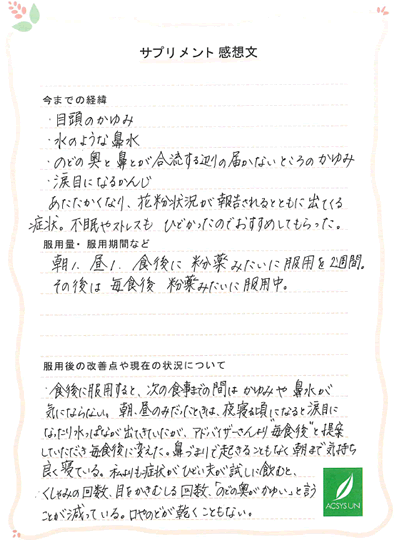 サプリメント 感想文
今までの経緯
・目頭のかゆみ
・水のような鼻水
・のどの奥と鼻とが合流する辺りの届かないところのかゆみ
・涙目になるかんじ
あたたかくなり、花粉状況が報告されるとともに出てくる
症状。不眠やストレスもひどかったのでおすすめしてもらった。
服用量・服用期間など
朝1、昼1、食後に粉薬みたいに服用を2週間。
その後は毎食後粉薬みたいに服用中。
服用後の改善点や現在の状況について
・食後に服用すると、次の食事までの間はかゆみや鼻水が
気にならない。朝、昼のみだったときは、夜寝る頃になると涙目に
なったり水っぱなが出てきていたが、アドバイザーさんより"毎食後"と提案
していただき毎食後に変えた。鼻づまりで起きることもなく朝まで気持ち
良く寝ている。私よりも症状がひどい夫が試しに飲むと、
くしゃみの回数、目をかきむしる回数、「のどの奥がかゆい」と言う
ことが減っている。口やのどが乾くこともない。
ACSYSUN